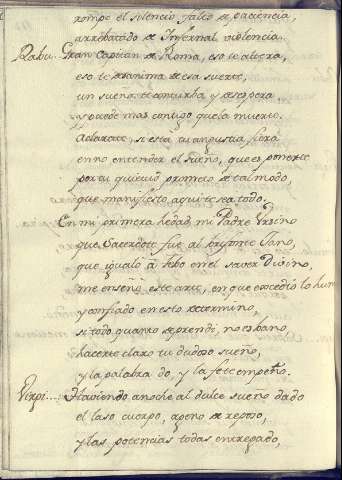 rompe el silencio falto de paciencia,
arrebatado de Infernal violencia.
Rabu.. Gran Capitan de Roma, eso te altera,
eso te desanima de esa suerte,
un sueño te conturba y desespera
y puede mas contigo que la muerte.
Aclarate, si està tu angustia fiera
en no entender el sueño, que es ponerte
por tu quietud prometo de tal modo,
que manifiesto aqui te sea todo.
En mi primera hedad mi Padre Ursino
que Sacerdote fue al
que igualò à Febo en el saver Divino,
me enseño este arte, en que excedio lo hum
y confiado en esto determino,
si todo quanto deprendi, no es bano
hacerte claro tu dudoso sueño,
y la palabra do, y la fe te empeño.
Virgi... Haviendo anoche al dulce sueño dado
el laso cuerpo, ageno de reposo,
y las potencias todas entregado,